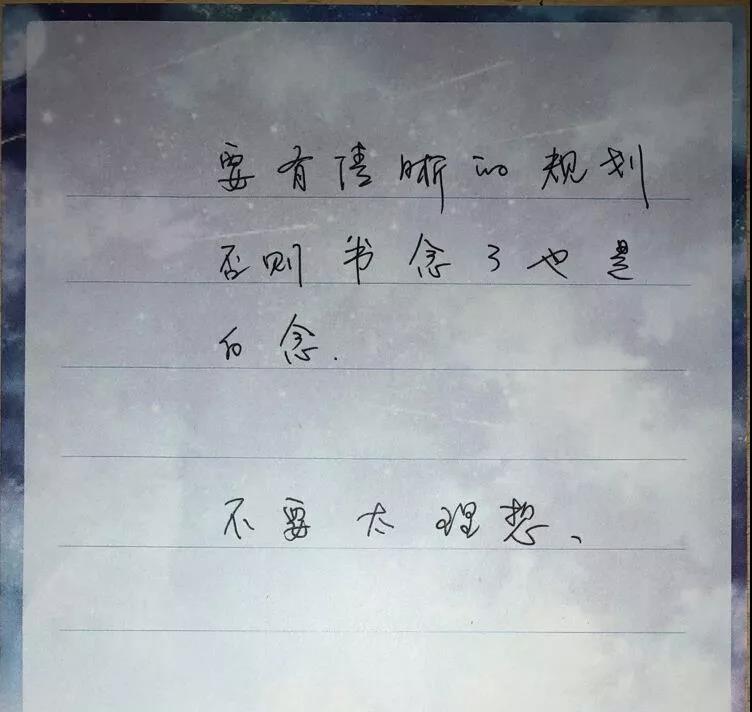 要有清晰的规划
否则书念了也是
白念.
不要太理想、